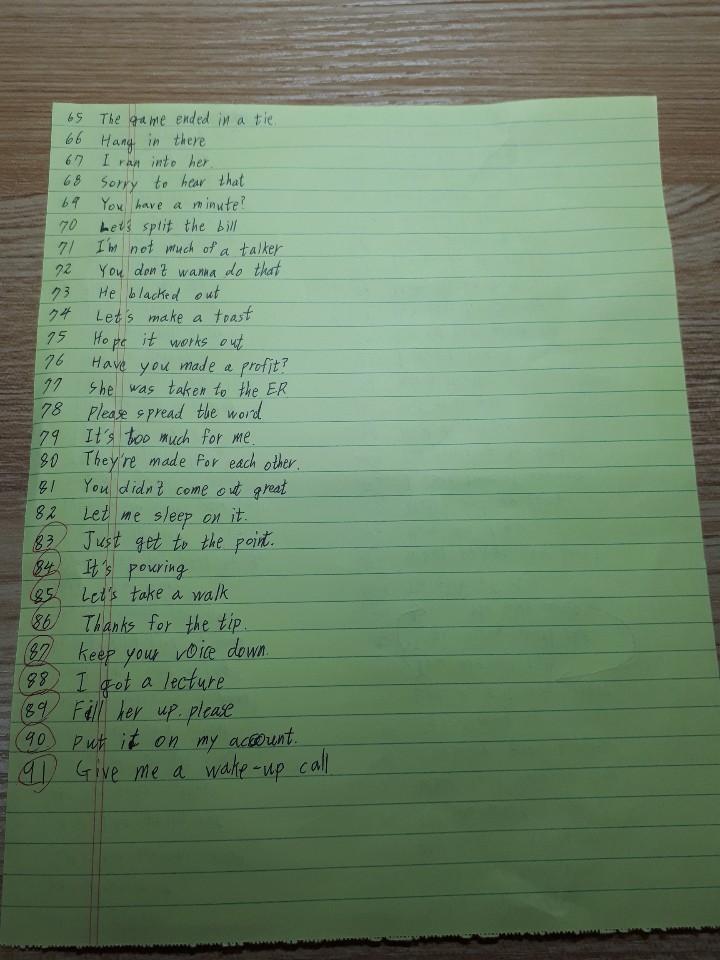 65 The game ended in a tie.
66 Hang in there
67 I ran into her.
68 Sorry to hear that
69 You have a minute?
70 Let's split the bill
71 I'm not much of a talker
72 You don't wanna do that
73 He blacked out
74 Let's make a toast
75 Hope it works out
76 Have you made a profit?
77 She was taken to the ER
78 Please spread the word
79 It's too much for me.
80 They're made for each other.
81 You didn't come out great
82 Let me sleep on it.
83 Just get to the point.
84 It's pouring
85 Let's take a walk
86 Thanks for the tip.
87 keep your voice down.
88 I got a lecture
89 Fill her up. please
90 Put it on my account.
91 Give me a wake-up call